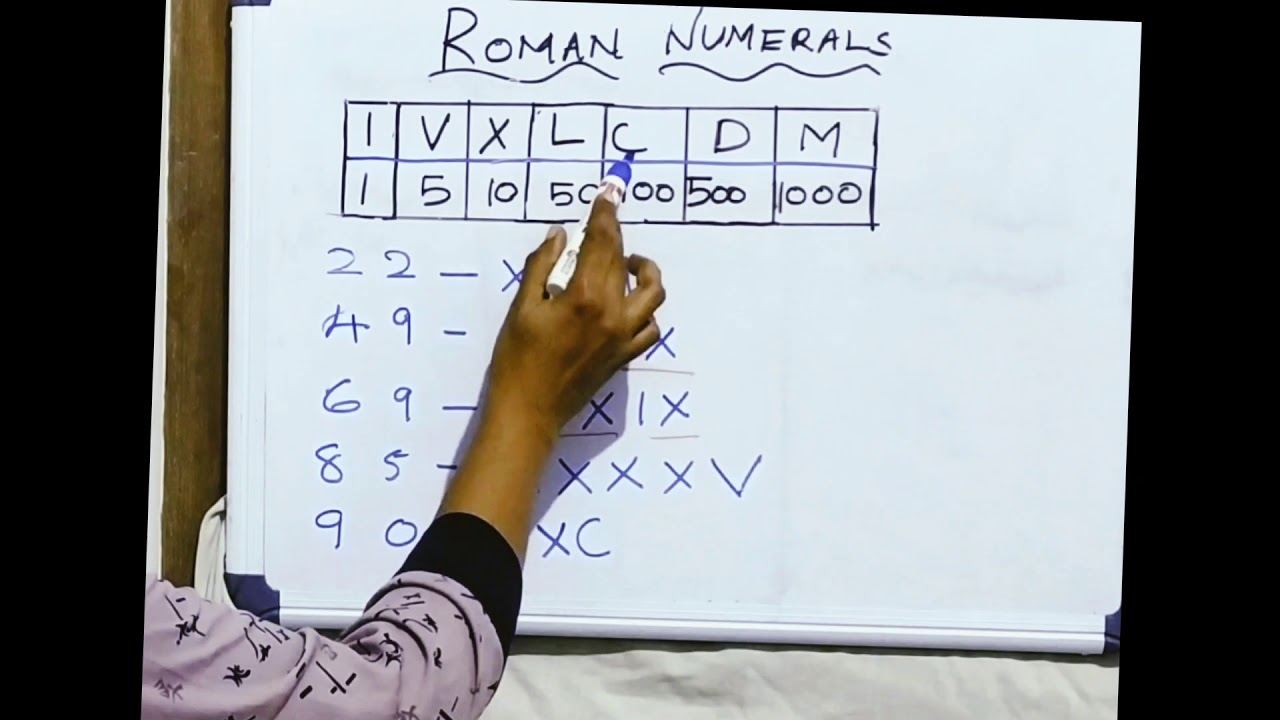 ROMAN NUMERALS
I V X L C D M
1 5 10 50 100 500 1000
22 - X
49 - X
69 - X I X
85 - X X X V
90 XC